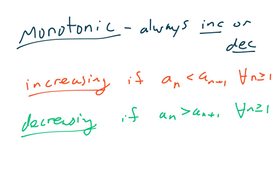 Monotonic - always inc or
dec
increasing if aₙ < aₙ₊₁ ∀n≥1
decreasing if aₙ > aₙ₊₁ ∀n≥1